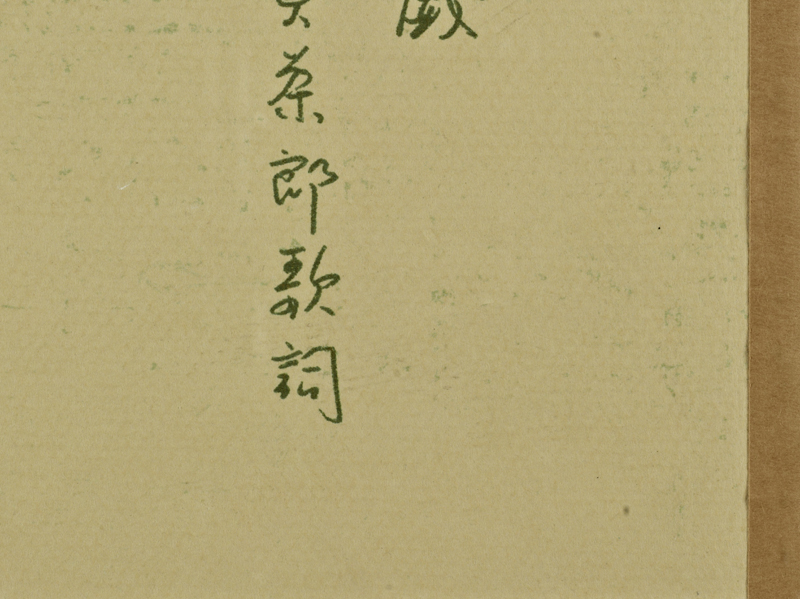 茶郎歌詞